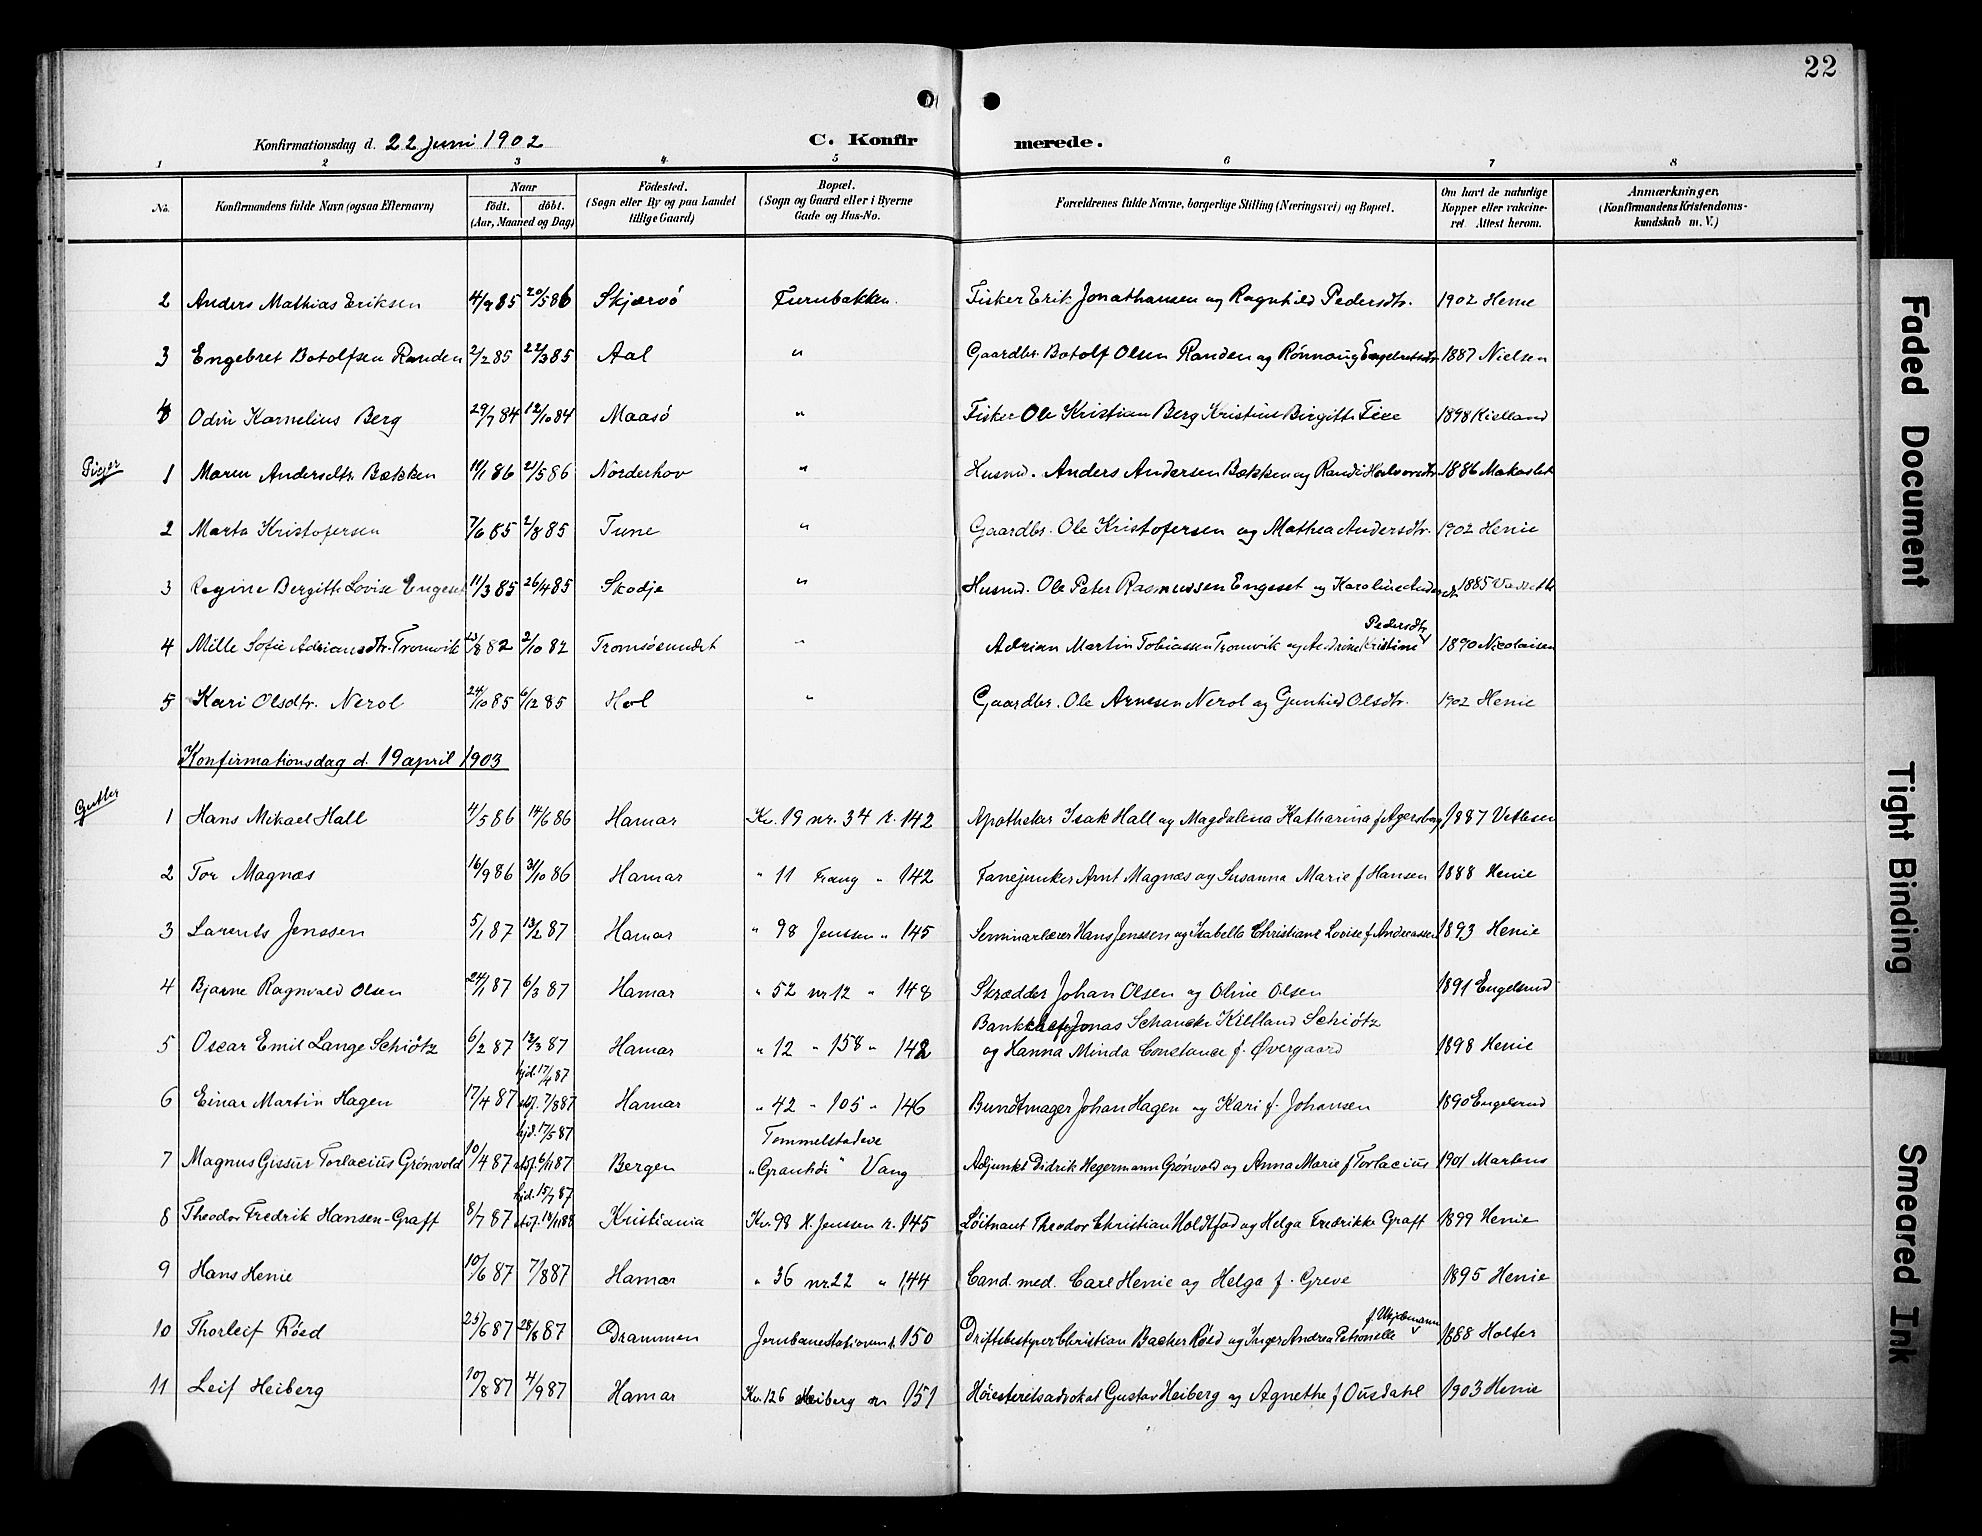 22
Konfirmationsdag d. 22 Juni 1902 C. Konfirmerede.
1 2 3 4 5 6 7 8
No. Konfirmandens fulde Navn (ogsaa Efternavn) Naar födt. döbt. (Aar, Maaned og Dag) Födested. (Sogn eller By og paa Landet tillige Gaard) Bopæl. (Sogn og Gaard eller i Byerne Gade og Hus-No. Forældrenes fulde Navne, borgerlige Stilling (Næringsvei) og Bopæl. Om havt de naturlige Kopper eller vakcineret. Attest herom. Anmærkninger. (Konfirmandens Kristendomskundskab m. V.)
2 Anders Mathias Eriksen 4/9 85 20/5 86 Skjærvö Furubakken. Fisker Erik Jonathansen og Ragnhild Pedersdtr. 1902 Henie
3 Engebret Botolfsen Randen 2/2 85 22/3 85 Aal " Gaardbr. Botolf Olsen Randen og Rönnaug Engebretsdtr 1887 Nielsen
4 Odin Kornelius Berg 29/7 84 12/10 84 Maasö " Fisker Ole Kristian Berg Kristine Birgitte 1898 Kielland
Piger 1 Maren Andersdtr. Bækken 11/1 86 2/5 86 Norderhov " Husmd. Anders Andersen Bækken og Randi Halvorsdtr 1886
2 Marta Kristofersen 7/6 85 2/8 85 Tune " Gaardbr. Ole Kristofersen og Mathea Andersdtr. 1902 Henie
3 Regine Bergitte Lovise Engeset 11/3 85 26/4 85 Skodje " Husmd. Ole Peter Rasmussen Engeset og Karoline 1885
4 Mille Sofie Adriansdtr. Tromvik 23/8 82 2/10 82 Tromsösundet " Adrian Martin Tobiassen Tromvik og Kristine Pedersdtr 1890 Nicolaisen
5 Kari Olsdtr. Nerol 24/10 85 6/12 85 Hol " Gaardbr. Ole Arnesen Nerol og Gunhild Olsdtr. 1902 Henie
Konfirmationsdag d. 19 april 1903
Gutter 1 Hans Mikael Hall 4/5 86 14/6 86 Hamar Kv. 19 nr. 34 r. 142 Apotheker Isak Hall og Magdalena Katharina f Agersborg 1887
2 Tor Magnæs 16/9 86 31/10 86 Hamar " 11 Frang " 142 Fanejunker Arnt Magnæs og Susanna Marie f Hansen 1888 Henie
3 Larents Jenssen 5/1 87 13/2 87 Hamar " 98 Jenssen " 145 Seminarlærer Hans Jenssen og Isabella Christiane Lovise f Andreassen 1893 Henie
4 Bjarne Ragnvald Olsen 24/1 87 6/3 87 Hamar " 52 nr. 12 " 148 Skrædder Johan Olsen og Oline Olsen 1891 Engelsrud
5 Oscar Emil Lange Schiötz 6/2 87 13/3 87 Hamar " 12 " 158 " 142 Bankchef Jonas Schancke Kielland Schiötz
og Hanna Minda Constance f. Øvergaard 1898 Henie
6 Einar Martin Hagen 17/4 87 hjd. 17/4 87 stf. 7/8 87 Hamar " 42 " 105 " 146 Bundtmager Johan Hagen og Kari f. Johansen 1890 Engelsrud
7 Magnus Gissur Torlacius Grönvold 10/4 87 hjd. 17/5 87 stf. 6/11 87 Bergen Tommelstadvei "Granhöi" Vang Adjunkt Didrik Hegermann Grönvold og Anna Marie f Torlacius 1901 Martens
8 Theodor Fredrik Hansen-Graff 8/7 87 hjd. 15/7 87 Kristiania Kv. 98 H. Jenssen r. 145 Löitnant Theodor Christian Holdtfod og Helga Fredrikke Graff 1899 Henie
9 Hans Henie 10/6 87 7/8 87 Hamar " 36 nr. 22 " 144 Cand. med. Carl Henie og Helga f. Greve 1895 Henie
10 Thorleif Röed 23/6 87 28/8 87 Drammen Jernbanestationen r. 150 Driftsbestyrer Christian Backer Röed og Inger Andrea Petronelle 1888 Holter
11 Leif Heiberg 10/8 87 4/9 87 Hamar Kv. 126 Heiberg 151 Höiesteretsadvokat Gustav Heiberg og Agnethe f Ousdahl 1903 Henie
Faded Document
Tight Binding
Smeared Ink